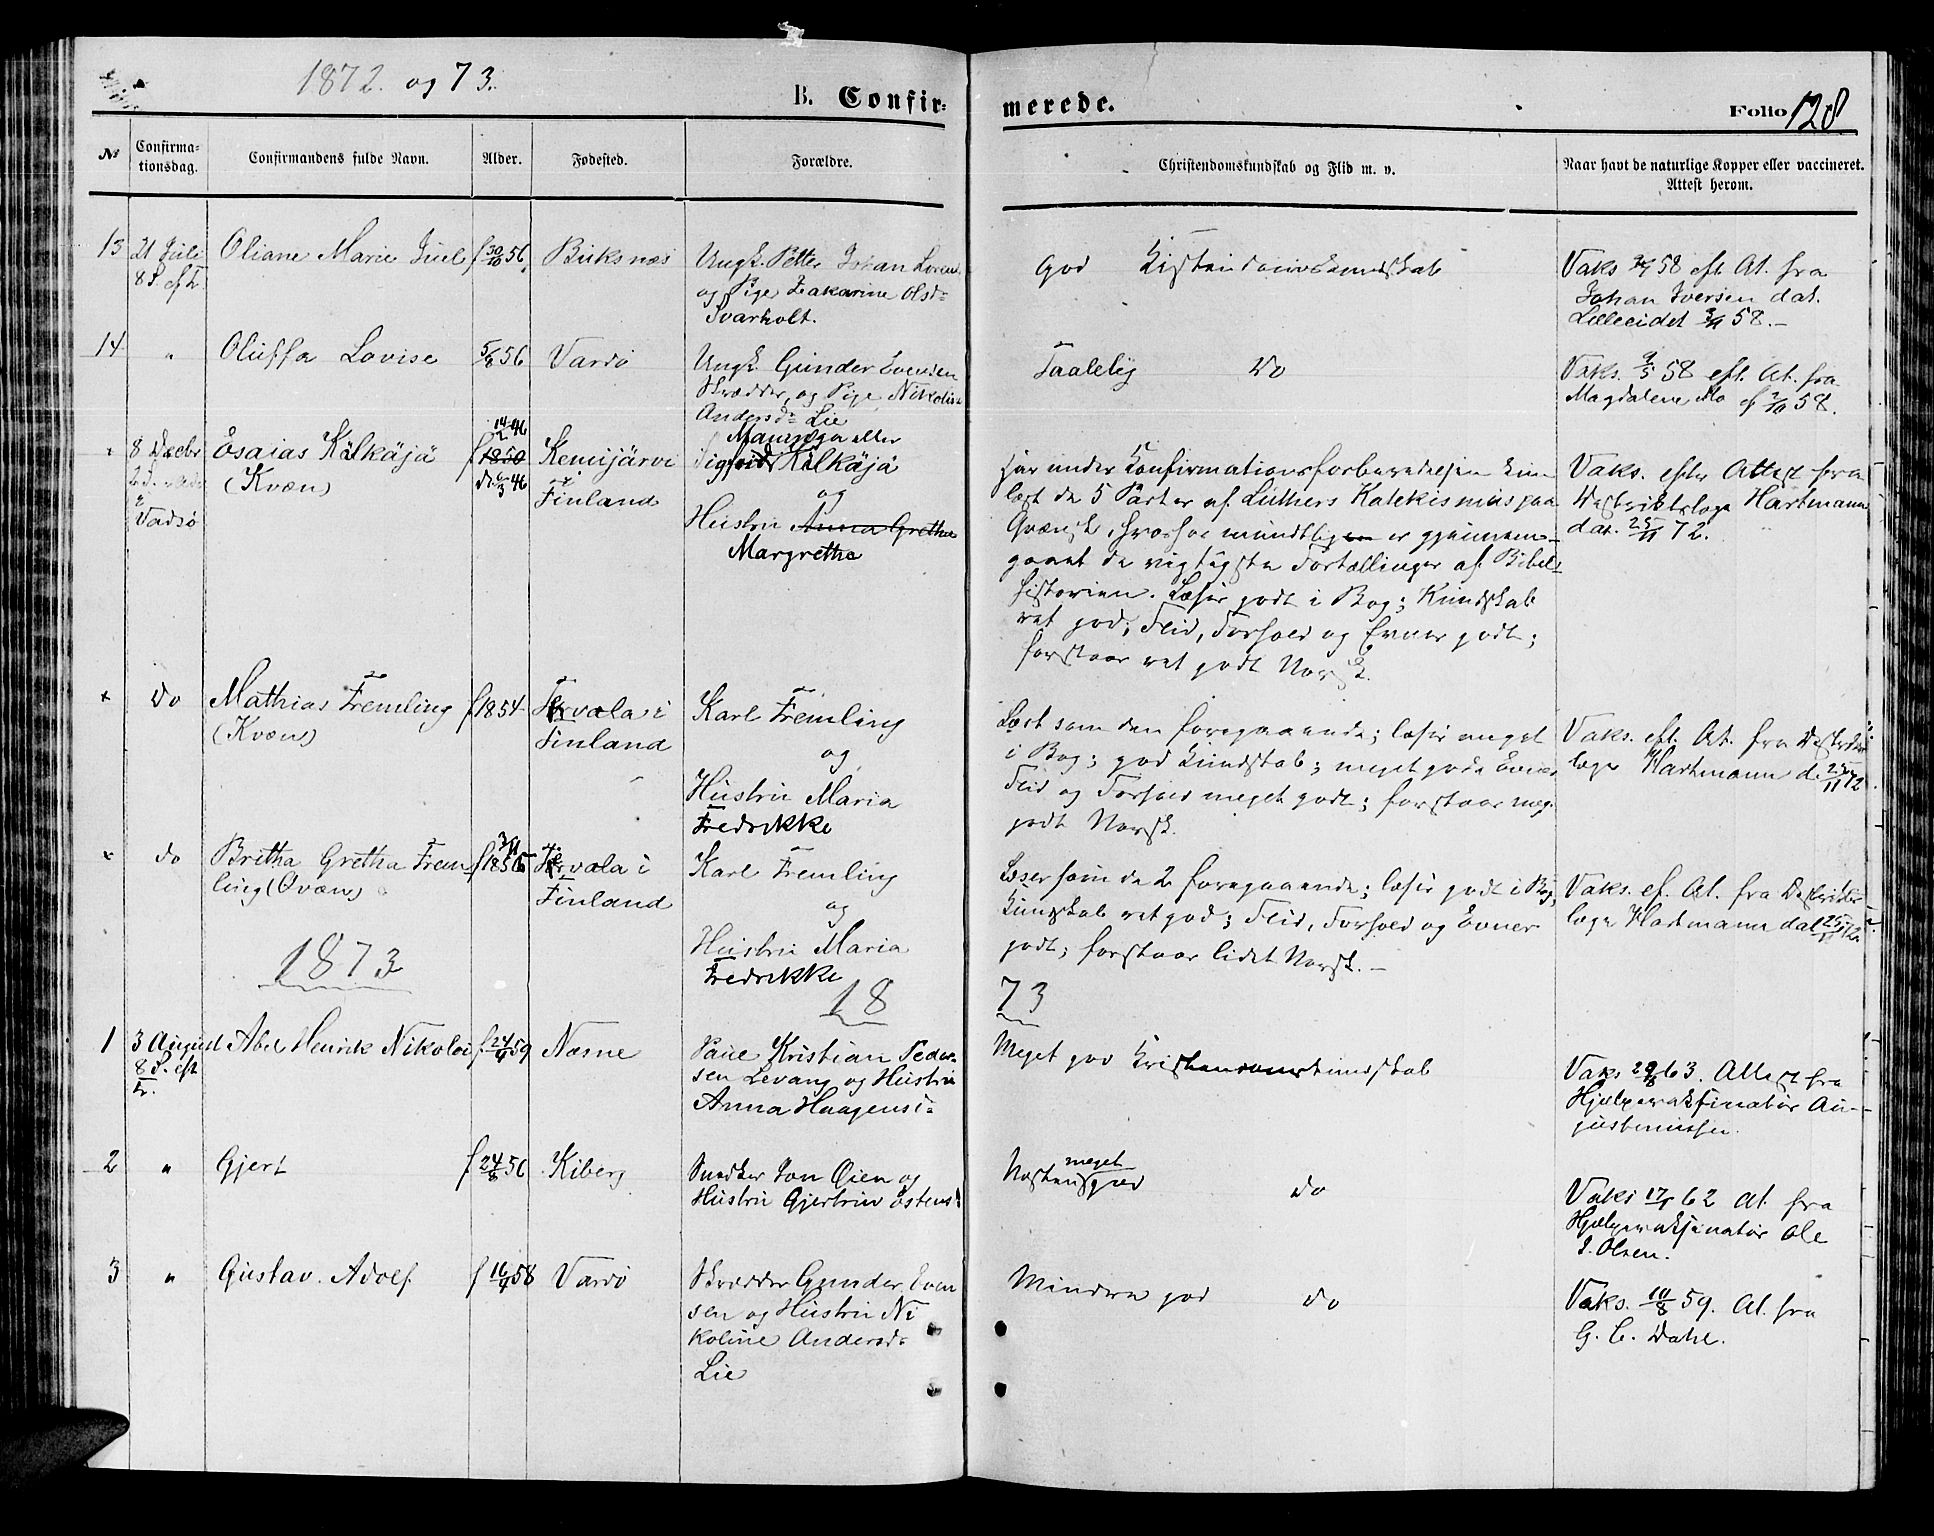 1872. og 73.
B. Confir-
merede.
Folio 128
№
Confirma-
tionsdag.
Confirmandens fulde Navn.
Alder.
Fødested.
Forældre.
Christendomskundskab og Flid m. v.
Naar havt de naturlige Kopper eller vaccineret.
Attest herom.
13
21 Juli
8 S. eft
Oliane Marie Juel
f 30/10 56
Buksnæs
Ungk. Petter Johan Loren
og Pige Zakarine Olsd-
Svarholt.
God Kristendomskundskab
Vaks 58 eft At. fra
Johan Iversen dat.
Lilleeidet 58.-
14
"
Oluffa Lovise
5/8 56
Vardø
Ungk. Gunder Evensen
Skrædder, og Pige Nikolin
Andersd- Lie
Taalelig Do
Vaks. 9/5 58 eft. At. fra
Magdalene Mo 58.
8 Decbr
Vadsø
Esaias Kälkäjä
(Kvæn)
f 1850
46
Kemijärvi
i
Finland
eller
Kälkäjä
og
Hustru Anna Gretha
Margretha
Har under Konfirmationsforberedelsen kun
læst de 5 Parter af Luthers Katekismus paa
Qvænsk, hvorhos mundtligen er gjennem-
gaaet de vigtigste Fortællinger af Bibel-
historien. Læser godt i Bog; Kundskab
ret god; Flid, Forhold og Evner godt;
forstaar ret godt Norsk.
Vaks. efter Attest fra
Distriktslæge Hartmann
dat. 25/11 72.
Do
Mathias Fremling
(Kvæn)
f 1854
Tervala i
Finland
Karl Fremling
og
Hustru Maria
Fredrikke
Læst som den foregaaende; læser meget
i Bog; god Kundskab; meget gode Evner
Flid og Forhold meget godt; forstaar meg.
godt Norsk.
Vaks. eft. At. fra Distrikts
læge Hartmann d. 25/11 72.
do
Britha Gretha Frem-
ling (Qvæn)
f 1856
Tervala i
Finland
Karl Fremling
og
Hustru Maria
Fredrikke
Læser som de 2 foregaaende; læser godt i Bog;
Kundskab ret god; Flid, Forhold og Evner
godt; forstaar lidet Norsk.-
Vaks. ef. At. fra Distrikts
læge Hartmann dat 25/11 72.
1873
18
73
1
3 August
8 S. eft
Tr.
Abel Henrik Nikolai
f 24/4 59
Næsne
Paul Kristian Peder-
sen Levang og Hustru
Anna Haagensd-
Meget god Kristendomskundskab
Vaks 29/8 63. Attest fra
Hjælpevaksinatør Au-
gustinussen.
2
"
Gjert
f 24/8 56
Kiberg
Snedker Jon Øien og
Hustru Gjertrud Estensd
Næsten meget god
do
Vaks 62 At. fra
Hjælpevaksinatør Ole
J. Olsen.
3
"
Gustav. Adolf
f 16/4 58
Vardø
Skrædder Gunder Even
sen og Hustru Ni
koline Andersd-
Lie
Mindre god
do
Vaks. 10/8 59. At. fra
G. C. Dahl.